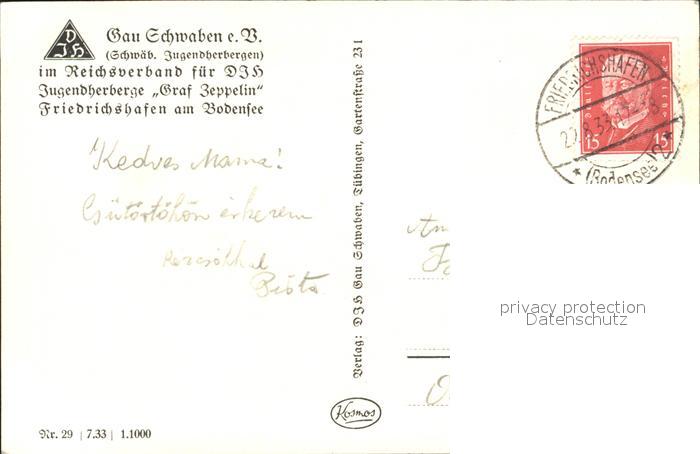 DJH
Gau Schwaben e. V.
(Schwäb. Jugendherbergen)
im Reichsverband für DJH
Jugendherberge „Graf Zeppelin"
Friedrichshafen am Bodensee
Kedves Mama!
Csütörtökön érkezem
Pista
Verlag: DJH Gau Schwaben, Tübingen, Gartenstraße 23 I
FRIEDRICHSHAFEN
(Bodensee) 2
15 15
An
privacy protection
Datenschutz
Kosmos
Nr. 29 | 7.33 | 1.1000